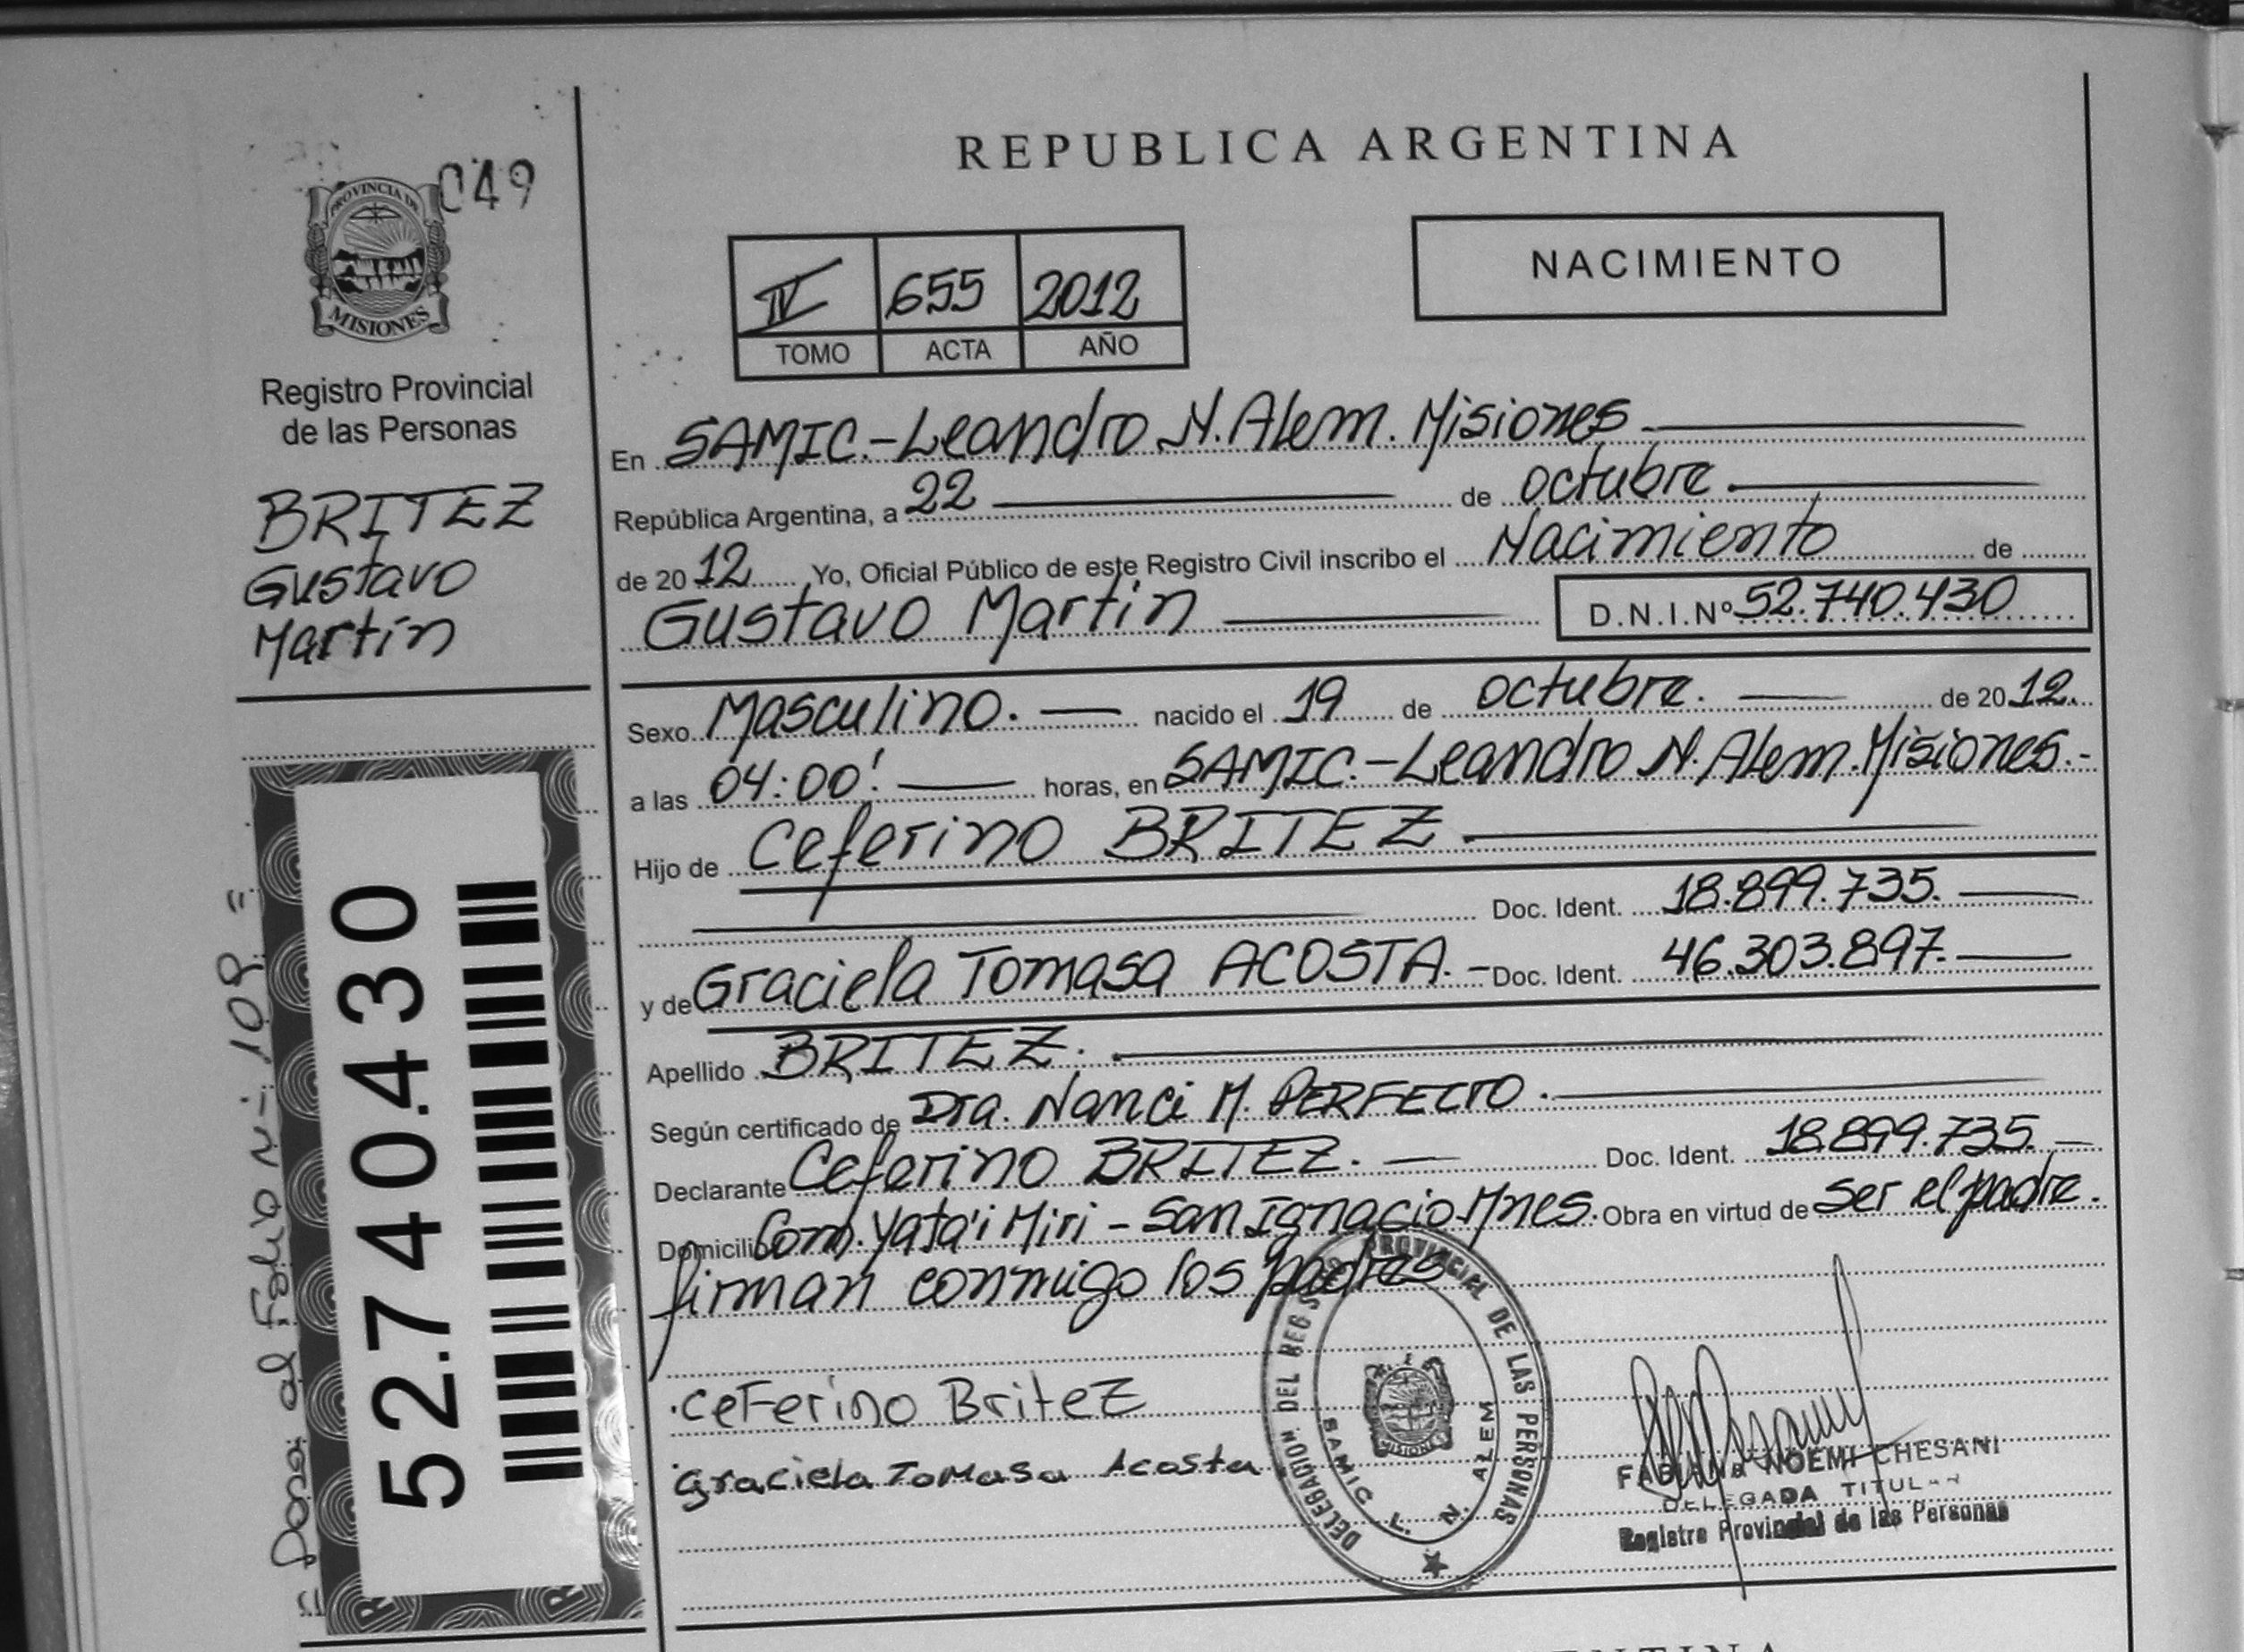 REPUBLICA ARGENTINA
049
PROVINCIA DE
MISIONES
Registro Provincial
de las Personas
BRITEZ
Gustavo
Martín
IV 655 2012
TOMO ACTA AÑO
NACIMIENTO
En SAMIC.-Leandro N. Alem. Misiones
República Argentina, a 22 de octubre.
de 20 12 Yo, Oficial Público de este Registro Civil inscribo el Nacimiento de
Gustavo Martín D.N.I.Nº 52.740.430
Sexo Masculino. nacido el 19 de octubre. de 20 12.
a las 04:00! horas, en SAMIC.-Leandro N. Alem. Misiones.-
Hijo de Ceferino BRITEZ
Doc. Ident. 18.899.735.
y de Graciela Tomasa ACOSTA.- Doc. Ident. 46.303.897.
Apellido BRITEZ.
Según certificado de Dra. Nanci M. PERFECTO.
Declarante Ceferino BRITEZ. Doc. Ident. 18.899.735.
Domicilio Com. Yata'i Miri - San Ignacio. Mnes. Obra en virtud de ser el padre.
firman conmigo los padres
Ceferino Britez
Graciela Tomasa Acosta
DELEGACION DEL REG PROVINCIAL DE LAS PERSONAS
SAMIC L. N. ALEM
MISIONES
NOEMI CHESANI
DELEGADA TITULAR
Registro Provincial de las Personas
52.740.430
Pasa al Folio Nº 108 =